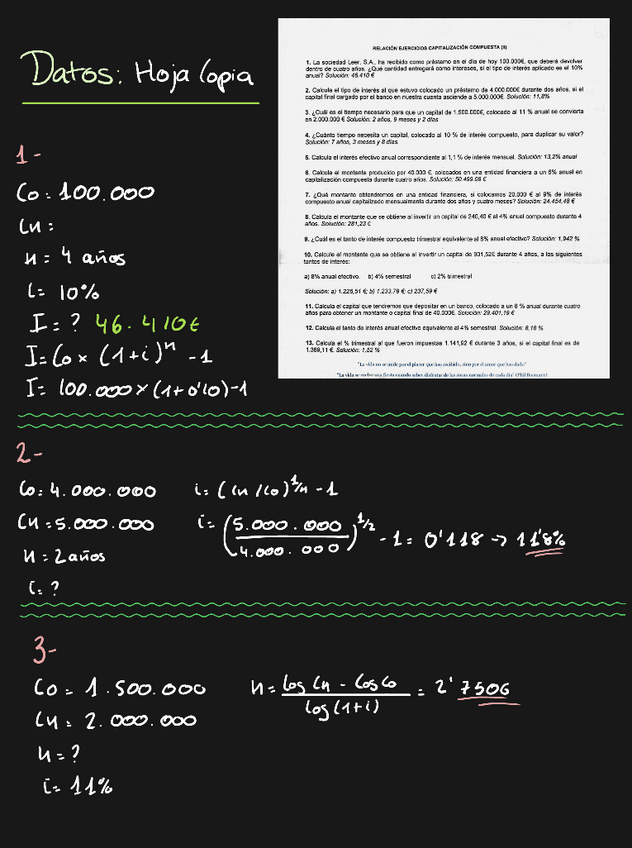 Datos: Hoja Copia
RELACIÓN EJERCICIOS CAPITALIZACIÓN COMPUESTA (II)
1. La sociedad Leer, S.A., ha recibido como préstamo en el día de hoy 100.000€, que deberá devolver
dentro de cuatro años. ¿Qué cantidad entregará como intereses, si el tipo de interés aplicado es el 10%
anual? Solución: 46.410 €
2. Calcula el tipo de interés al que estuvo colocado un préstamo de 4.000.000€ durante dos años, si el
capital final cargado por el banco en nuestra cuenta asciende a 5.000.000€. Solución: 11,8%
3. ¿Cuál es el tiempo necesario para que un capital de 1.500.000€, colocado al 11 % anual se convierta
en 2.000.000 € Solución: 2 años, 9 meses y 2 días
4. ¿Cuánto tiempo necesita un capital, colocado al 10 % de interés compuesto, para duplicar su valor?
Solución: 7 años, 3 meses y 8 días
5. Calcula el interés efectivo anual correspondiente al 1,1 % de interés mensual. Solución: 13,2% anual
6. Calcula el montante producido por 40.000 €, colocados en una entidad financiera a un 6% anual en
capitalización compuesta durante cuatro años. Solución: 50.499,08 €
7. ¿Qué montante obtendremos en una entidad financiera, si colocamos 20.000 € al 9% de interés
compuesto anual capitalizado mensualmente durante dos años y cuatro meses? Solución: 24.454,48 €
8. Calcula el montante que se obtiene al invertir un capital de 240,40 € al 4% anual compuesto durante 4
años. Solución: 281,23 €
9. ¿Cuál es el tanto de interés compuesto trimestral equivalente al 8% anual efectivo? Solución: 1,942 %
10. Calcular el montante que se obtiene al invertir un capital de 901,52€ durante 4 años, a los siguientes
tantos de interés:
a) 8% anual efectivo. b) 4% semestral c) 2% trimestral
Solución: a) 1.226,51 €; b) 1.233,79 €; c)
11. Calcula el capital que tendremos que depositar en un banco, colocado a un 8 % anual durante cuatro
años para obtener un montante o capital final de 40.000€. Solución: 29.401,19 €
12. Calcula el tanto de interés anual efectivo equivalente al 4% semestral. Solución: 8,16 %
13. Calcula el % trimestral al que fueron impuestas 1.141,92 € durante 3 años, si el capital final es de
1.369,11 €. Solución: 1,52 %
1-
Co: 100.000
Cn:
n = 4 años
i = 10%
I = ? 46.410€
I = Co × (1+i)ⁿ - 1
I = 100.000 × (1+0'10) - 1
2-
Co: 4.000.000 i = (Cn/Co)^1/n - 1
Cn = 5.000.000 i = (5.000.000/4.000.000)^1/2 - 1 = 0'118 → 11'8%
n = 2 años
i = ?
3-
Co = 1.500.000 n = log Cn - log Co / log (1+i) = 2'7506
Cn = 2.000.000
n = ?
i = 11%